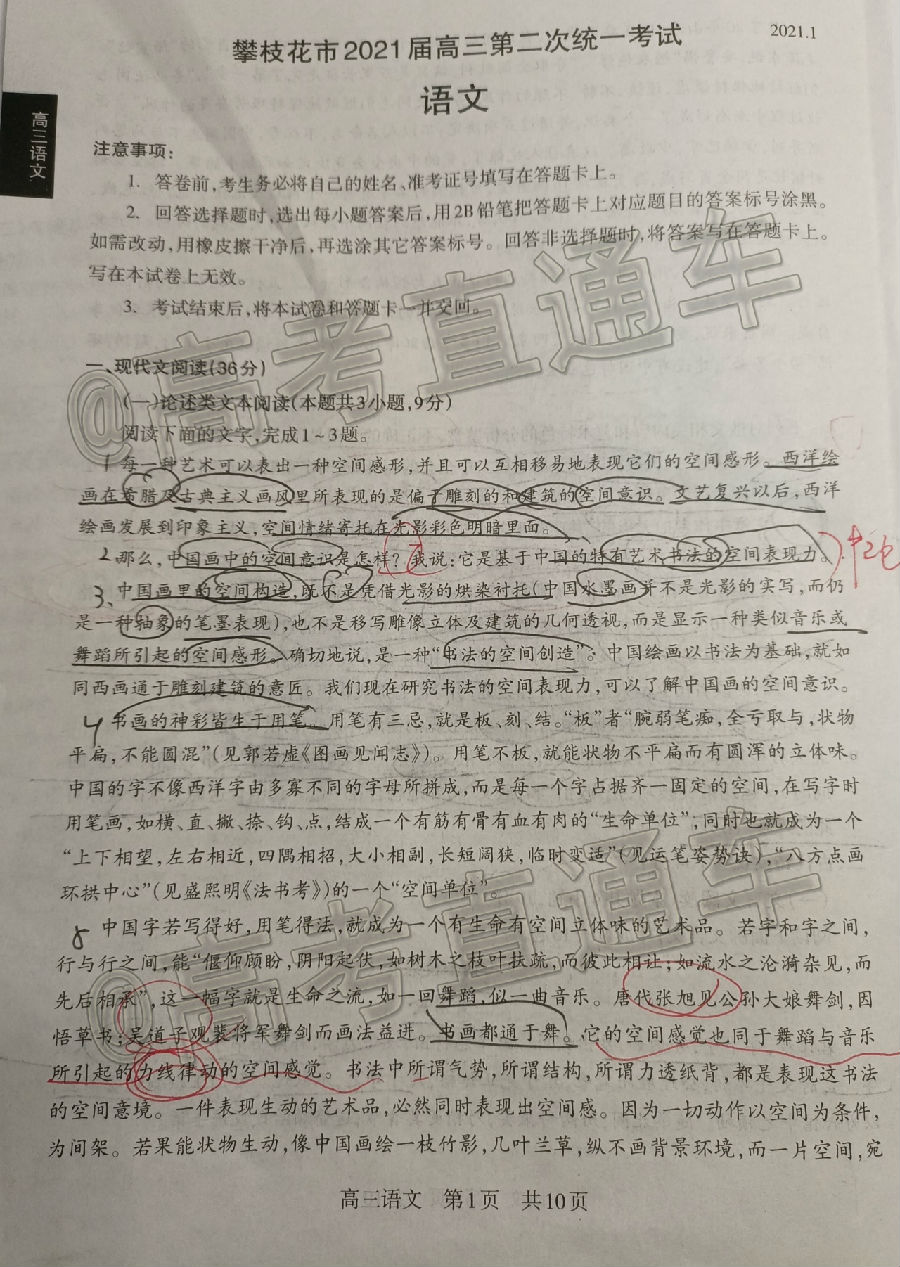 2021.1
攀枝花市2021届高三第二次统一考试
语文
高三语文
注意事项：
1. 答卷前,考生务必将自己的姓名、准考证号填写在答题卡上。
2. 回答选择题时,选出每小题答案后,用2B铅笔把答题卡上对应题目的答案标号涂黑。
如需改动,用橡皮擦干净后,再选涂其它答案标号。回答非选择题时,将答案写在答题卡上。
写在本试卷上无效。
3. 考试结束后,将本试卷和答题卡一并交回。
@高考直通车
一、现代文阅读(36分)
(一)论述类文本阅读(本题共3小题,9分)
阅读下面的文字,完成1~3题。
1 每一种艺术可以表出一种空间感形,并且可以互相移易地表现它们的空间感形。西洋绘
画在希腊及古典主义画风里所表现的是偏于雕刻的和建筑的空间意识。文艺复兴以后,西洋
绘画发展到印象主义,空间情绪寄托在光影彩色明暗里面。
2 那么,中国画中的空间意识是怎样?我说:它是基于中国的特有艺术书法的空间表现力。
3 中国画里的空间构造,既不是凭借光影的烘染衬托(中国水墨画并不是光影的实写,而仍
是一种抽象的笔墨表现),也不是移写雕像立体及建筑的几何透视,而是显示一种类似音乐或
舞蹈所引起的空间感形。确切地说,是一种“书法的空间创造”。中国绘画以书法为基础,就如
同西画通于雕刻建筑的意匠。我们现在研究书法的空间表现力,可以了解中国画的空间意识。
4 书画的神彩皆生于用笔。用笔有三忌,就是板、刻、结。“板”者“腕弱笔痴,全亏取与,状物
平扁,不能圆混”(见郭若虚《图画见闻志》)。用笔不板,就能状物不平扁而有圆浑的立体味。
中国的字不像西洋字由多寡不同的字母所拼成,而是每一个字占据齐一固定的空间,在写字时
用笔画,如横、直、撇、捺、钩、点,结成一个有筋有骨有血有肉的“生命单位”;同时也就成为一个
“上下相望,左右相近,四隅相招,大小相副,长短阔狭,临时变适”(见运笔姿势诀),“八方点画
环拱中心”(见盛熙明《法书考》)的一个“空间单位”。
@高考直通车
中国字若写得好,用笔得法,就成为一个有生命有空间立体味的艺术品。若字和字之间,
行与行之间,能“偃仰顾盼,阴阳起伏,如树木之枝叶扶疏,而彼此相让;如流水之沦漪杂见,而
先后相承”,这一幅字就是生命之流,如一回舞蹈,似一曲音乐。唐代张旭见公孙大娘舞剑,因
悟草书;吴道子观裴将军舞剑而画法益进。书画都通于舞。它的空间感觉也同于舞蹈与音乐
所引起的力线律动的空间感觉。书法中所谓气势,所谓结构,所谓力透纸背,都是表现这书法
的空间意境。一件表现生动的艺术品,必然同时表现出空间感。因为一切动作以空间为条件,
为间架。若果能状物生动,像中国画绘一枝竹影,几叶兰草,纵不画背景环境,而一片空间,宛
高三语文 第1页 共10页